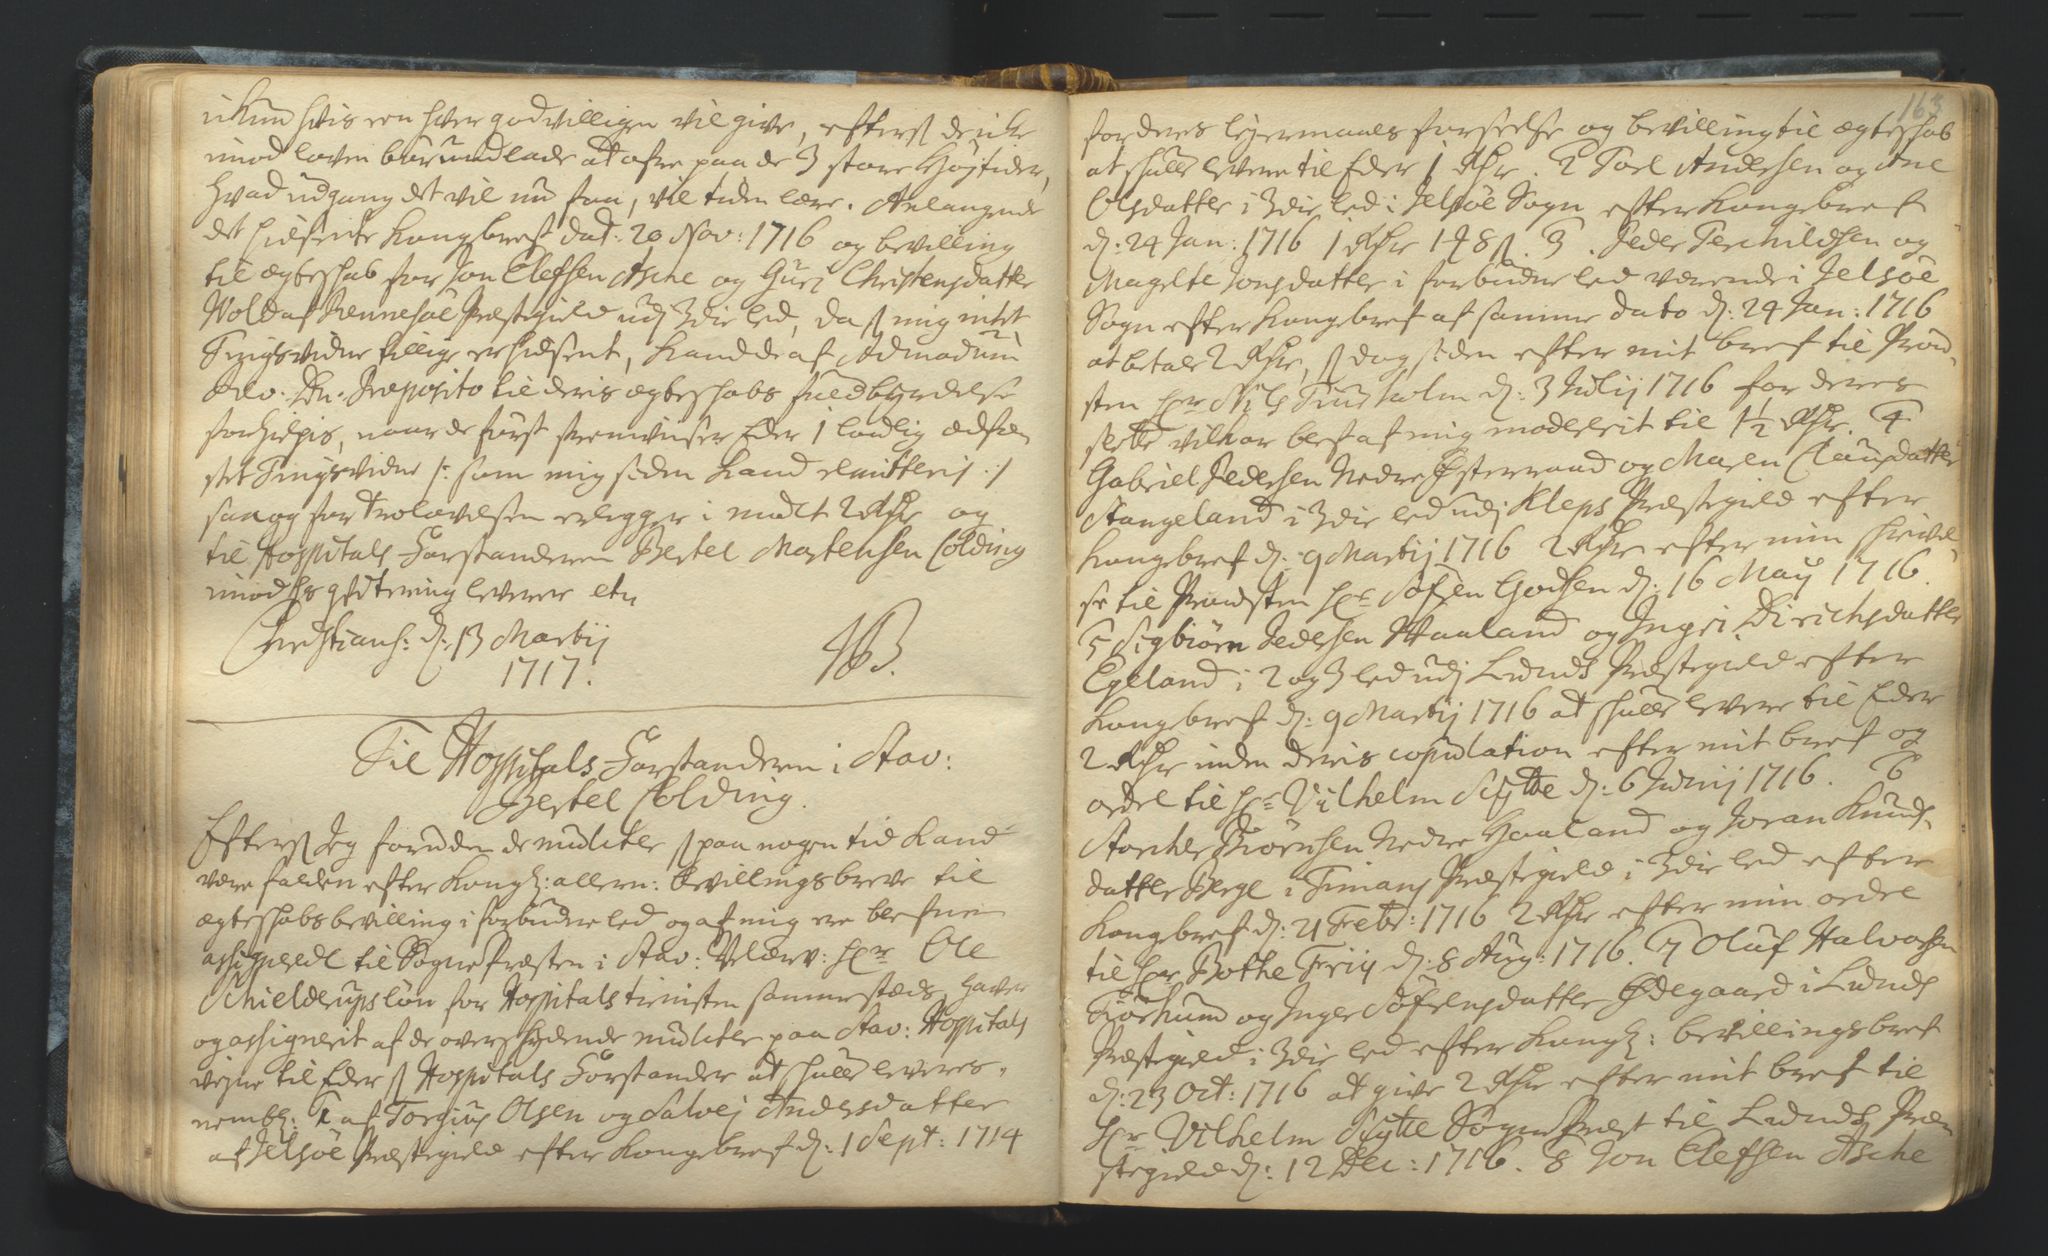 ickun hvis een hver godvilligen vil give, efterſ de icke
imod loven bør undlade at ofre paa de 3 store Højtider,
hvad udgang det vil nu faa, vil tiden lære. Anlangende
det hidsendte Kongebref dat: 20 Nov: 1716 og bevilling
til ægteskab for Jon Elefsen Asche og Guri Christensdatter
Vold af Rennesøe Præstegield udj 3die led, da ſ mig intet
Tingsvidne tillige er hidsent, kand de af Admodum
Rev: Dn. Præposito til deris ægteskabs fuldbyrdelse
forhielpis, naar de først fremviser Eder 1 lovlig udsteed
stet Tingsvidne /: som mig siden kand remitteris :/
saa og for Trolovelsen erlegger i mulct 2 Rdr og
til Hospitals Forstanderen Bertel Mortensen Colding
imod hs qvitering leverer etc
Christians: d: 13 Martij
1717. JBB.
Til Hospitals Forstanderen i Stav:
Bertel Colding.
Efterſ Jeg foruden de mulcter ſ paa nogen tid kand
være falden efter Kongl: allern: bevillingsbreve til
ægteskabs bevilling i forbudne led og af mig ere blefne
assignerede til Sognepræsten i Stav: Velærv: Hr Ole
Schielderups løn for Hospitals tienisten sammesteds, haver
og assignerit af de overskydende mulcter paa Stav: Hospitals
vegne til Eder ſ Hospitals Forstander at skulle leveres,
nembl: 1 af Torgius Olsen og Salvej Andersdatter
af Jelsøe Præstegield efter Kongebref d: 1 Sept: 1714
163
for deres lejermaals forseelse og bevilling til ægteskab
at skulle levere til Eder 1 Rdr. 2 Poel Andersen og Ane
Olsdatter i 3die led i Jelsøe Sogn efter Kongebref
d: 24 Jan: 1716 1 Rdr 1 ₰ 8 ſ. 3. Peder Terchildsen og
Magelte Jonsdatter i forbudne led værende i Jelsøe
Sogn efter Kongebref af samme dato d: 24 Jan: 1716
at betale 2 Rdr, ſ dog siden efter mit bref til Prov-
sten Hr Nils Tuxholm d: 3 Julij 1716 for deres
slette vilkor blef af mig moderert til 1½ Rdr. 4
Gabriel Pedersen Nedre Østerraad og Maren Clausdatter
Stangeland i 3die led udj Kleps Præstegield efter
Kongebref d: 9 Martij 1716 2 Rdr efter min skrivel-
se til Provsten Hr Søfren Godsen d: 16 Maij 1716.
5 Sigbiørn Pedersen Waaland og Ingri Dirichsdatter
Egeland i 2 og 3 led udj Lunds Præstegield efter
Kongebref d: 9 Martij 1716 at skulle levere til Eder
2 Rdr inden deris copulation efter mit bref og
ordre til Hr Vilhelm Schytte d: 6 Junij 1716. 6
Storcher Biørnsen Nedre Haaland og Joran Knuds-
datter Berge i Timans Præstegield i 3die led efter
Kongebref d: 21 Febr: 1716 2 Rdr efter min ordre
til Hr Bothe Friis d: 8 Aug: 1716. 7 Oluf Halvorsen
Tiørhum og Inger Søfrensdatter Ødegaard i Lunds
Præstegield i 3die led efter Kongl: bevillingsbref
d: 23 Oct: 1716 at give 2 Rdr efter mit bref til
Hr Vilhelm Schytte Sogne Præst til Lunds Præ-
stegield d: 12 Dec: 1716. 8 Jon Elefsen Asche